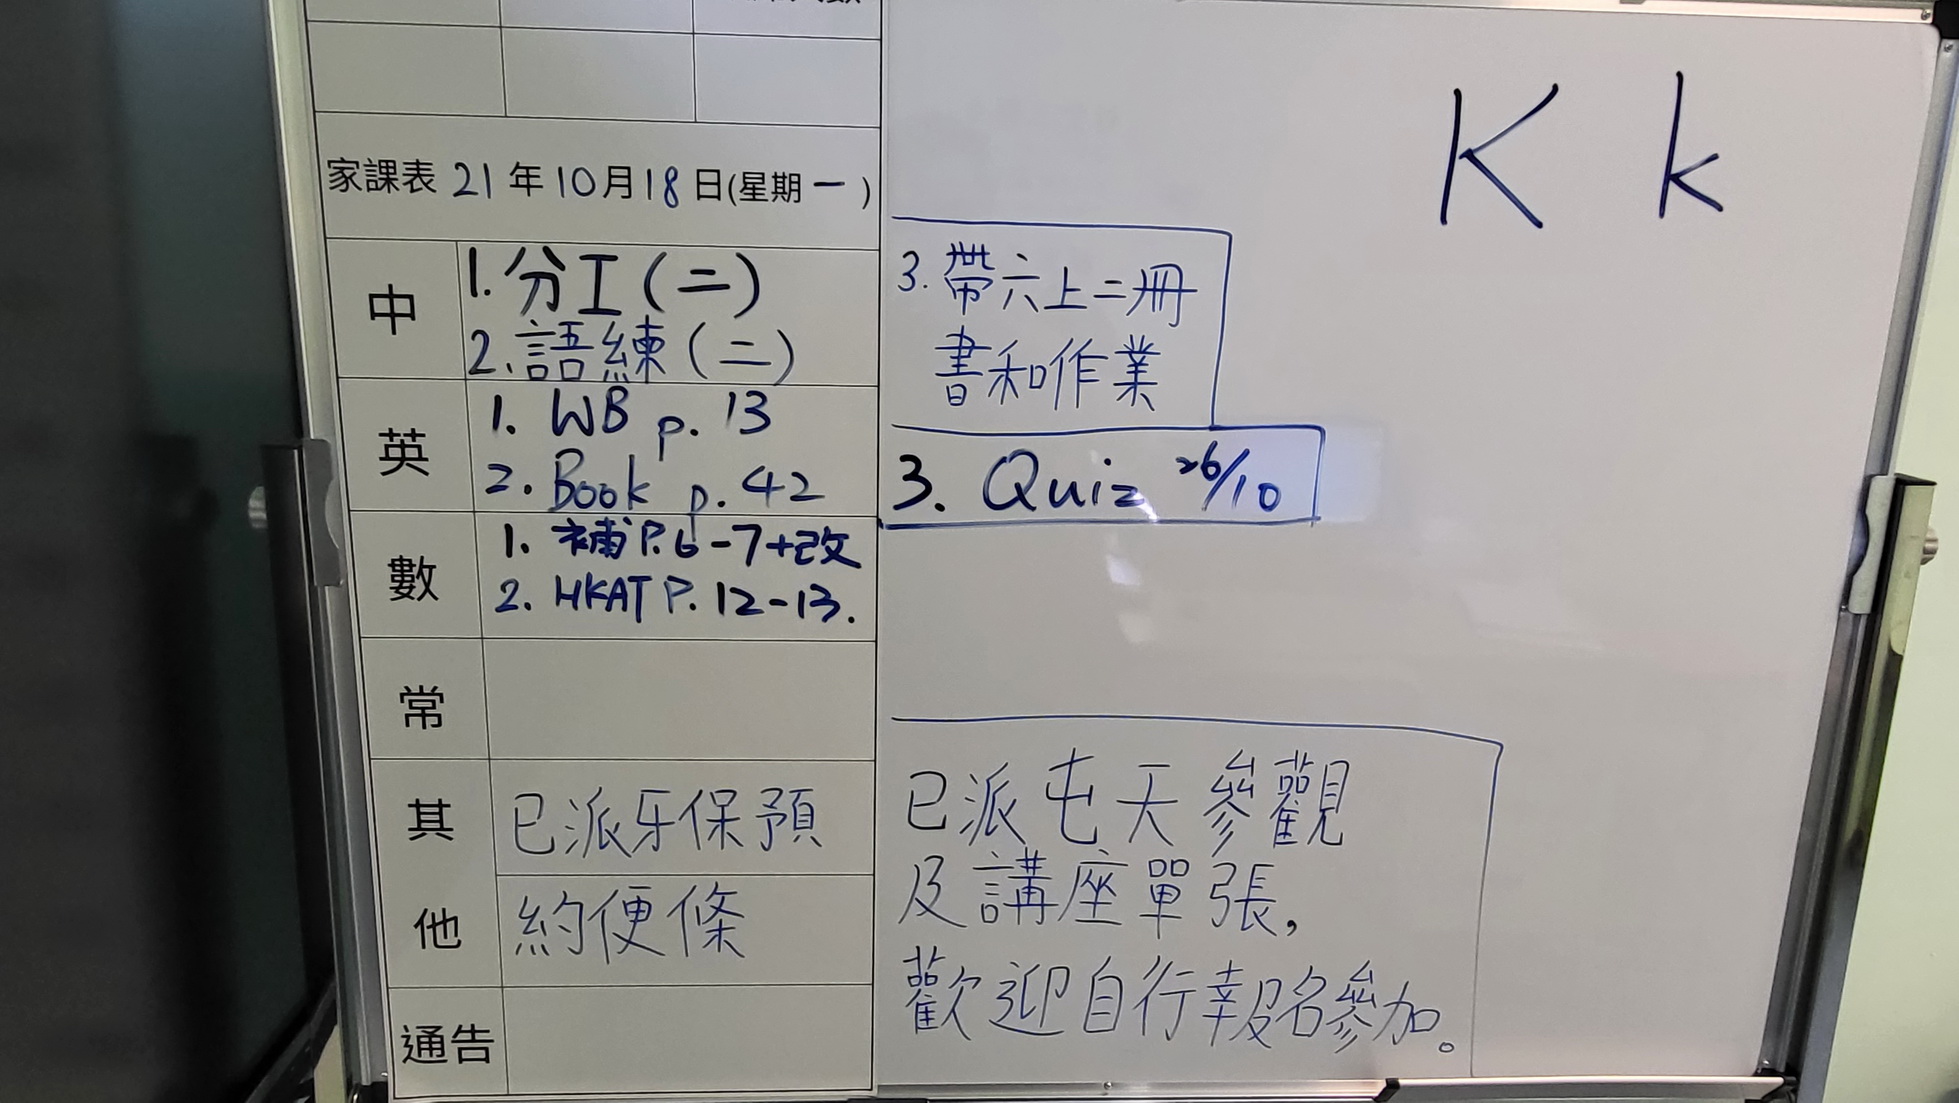 K k
家課表 21 年 10 月 18 日(星期 一 )
中
1. 分工(二)
2. 語練(二)
3. 帶六上二冊
書和作業
英
1. WB p. 13
2. Book p. 42
3. Quiz 26/10
數
1. 補 P. 6-7+改
2. HKAT P. 12-13.
常
其他
已派牙保預
約便條
已派屯天參觀
及講座單張,
歡迎自行報名參加。
通告